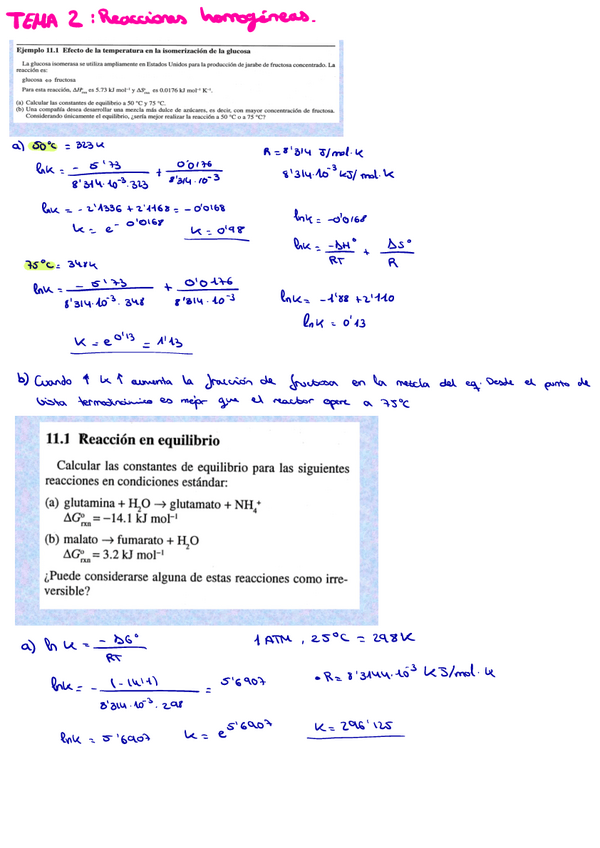 TEMA 2: Reacciones homogéneas.
Ejemplo 11.1 Efecto de la temperatura en la isomerización de la glucosa
La glucosa isomerasa se utiliza ampliamente en Estados Unidos para la producción de jarabe de fructosa concentrado. La
reacción es:
glucosa ⇔ fructosa
Para esta reacción, ΔH°rxn es 5.73 kJ mol⁻¹ y ΔS°rxn es 0.0176 kJ mol⁻¹ K⁻¹.
(a) Calcular las constantes de equilibrio a 50 °C y 75 °C.
(b) Una compañía desea desarrollar una mezcla más dulce de azúcares, es decir, con mayor concentración de fructosa.
Considerando únicamente el equilibrio, ¿sería mejor realizar la reacción a 50 °C o a 75 °C?
a) 50°C = 323K
R = 8'314 J/mol·K
lnK = - 5'73 / 8'314·10⁻³·323 + 0'0176 / 8'314·10⁻³
8'314·10⁻³ kJ/mol·K
lnK = -2'1336 + 2'1168 = -0'0168
K = e^-0'0168 K = 0'98
lnK = -0'0168
lnK = -ΔH° / RT + ΔS° / R
75°C = 348K
lnK = - 5'73 / 8'314·10⁻³·348 + 0'0176 / 8'314·10⁻³
lnK = -1'88 + 2'110
lnK = 0'13
K = e^0'13 = 1'13
b) Cuando ↑ K ↑ aumenta la fracción de fructosa en la mezcla del eq. Desde el punto de
vista termodinámico es mejor que el reactor opere a 75°C
11.1 Reacción en equilibrio
Calcular las constantes de equilibrio para las siguientes
reacciones en condiciones estándar:
(a) glutamina + H₂O → glutamato + NH₄⁺
ΔG°rxn = –14.1 kJ mol⁻¹
(b) malato → fumarato + H₂O
ΔG°rxn = 3.2 kJ mol⁻¹
¿Puede considerarse alguna de estas reacciones como irre-
versible?
a) ln K = -ΔG° / RT
1 ATM, 25°C = 298K
lnK = - (-14'1) / 8'314·10⁻³·298 = 5'6907
• R = 8'3144·10⁻³ KJ/mol·K
lnK = 5'6907 K = e^5'6907 K = 296'125